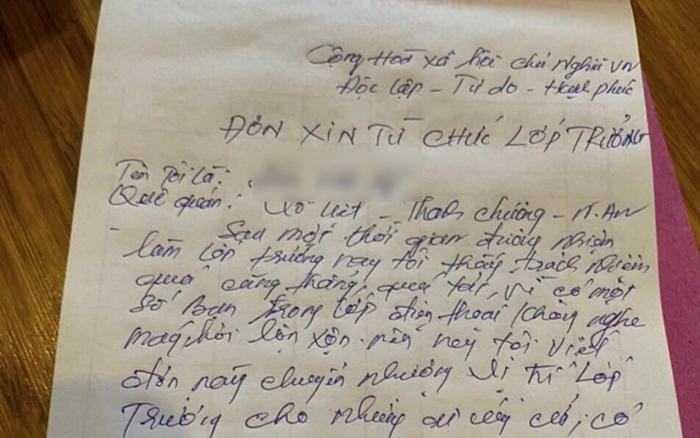 Cộng Hoà xã hội chủ nghĩa VN
Độc lập - Tự do - Hạnh phúc
ĐƠN XIN TỪ CHỨC LỚP TRƯỞNG
Tên tôi là:
Quê quán: Xô Viết - Thanh chương - N.An
- Sau một thời gian đương nhiệm
làm lớp trưởng nay tôi thấy trách nhiệm
quá căng thẳng, quá tải, vì có một
số bạn trong lớp điện thoại không nghe
máy, hỏi lộn xộn. nên nay tôi viết
đơn này chuyển nhượng vị trí Lớp
Trưởng cho những ai cứng cỏi, có